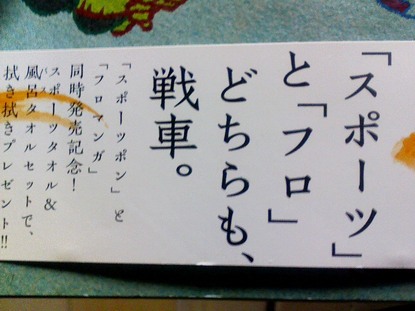 「スポーツ」
と「フロ」
どちらも、
戦車。
「スポーツポン」と
「フロマンガ」
同時発売記念！
スポーツタオル＆
風呂タオルセットで、
バス
拭き拭きプレゼント!!